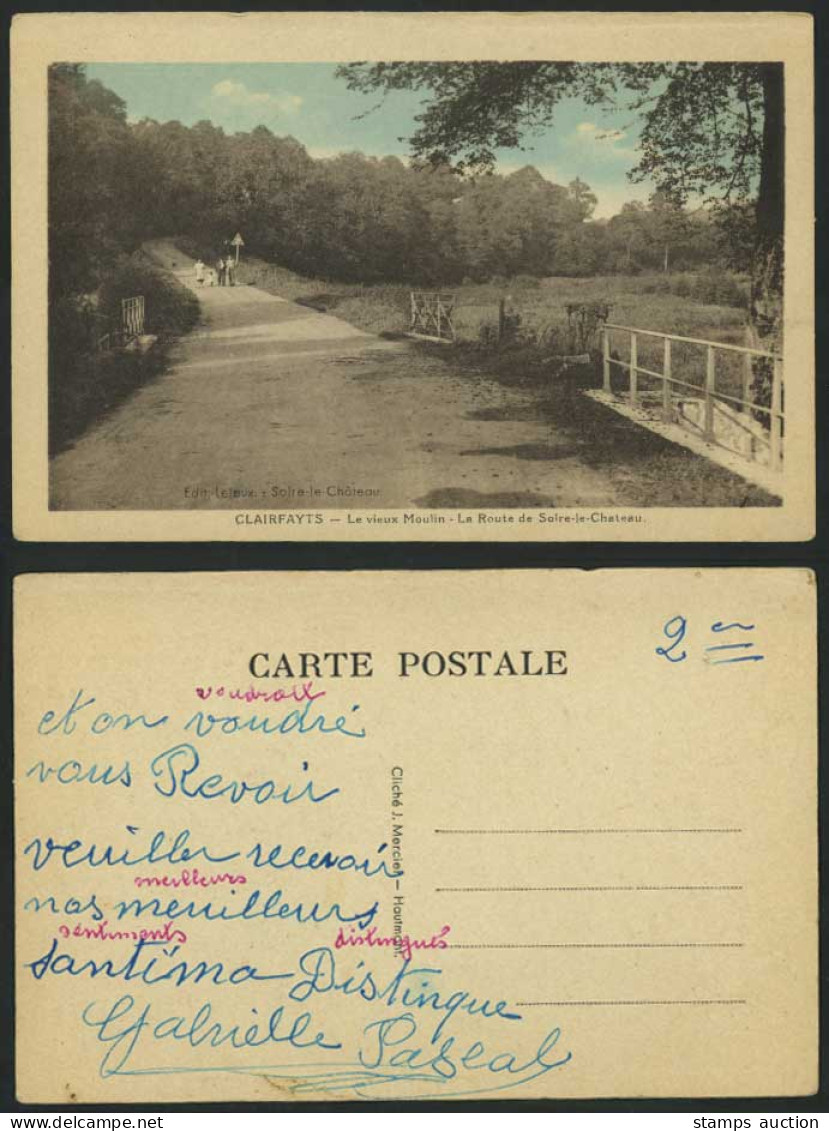 Edit. Lejeux. - Solre-le-Château
CLAIRFAYTS — Le vieux Moulin - La Route de Solre-le-Chateau.
2 en
CARTE POSTALE
voudrait
et on voudré
vous Revoir
veuiller recevoir
meilleurs
nos meuilleurs
sentiments distingués
santima Distinque
Gabrielle Pascal
Cliché J. Mercier — Hautmont.
stamps auction